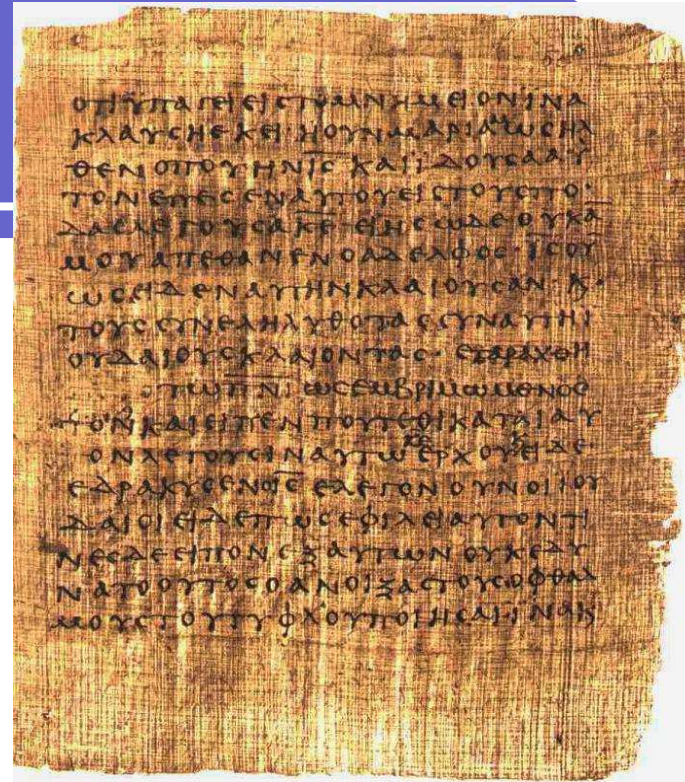 ΟΤΙΫΠΑΓΕΙΕΙϹΤΟΜΝΗΜΕΙΟΝΙΝΑ
ΚΛΑΥϹΗΕΚΕΙ·ΗΟΥΝΜΑΡΙΑΜΩϹΗΛ
ΘΕΝΟΠΟΥΗΝΙ̅Ϲ̅ΚΑΙΪΔΟΥϹΑΑΥ
ΤΟΝΕΠΕϹΕΝΑΥΤΟΥΕΙϹΤΟΥϹΠΟ·
ΔΑϹΛΕΓΟΥϹΑΚ̅Ε̅ΕΙΗϹΩΔΕΟΥΚΑ̅
ΜΟΥΑΠΕΘΑΝΕΝΟΑΔΕΛΦΟϹ·Ι̅Ϲ̅ΟΥ̅
ΩϹΕΙΔΕΝΑΥΤΗΝΚΛΑΙΟΥϹΑΝ·Κ·
ΤΟΥϹϹΥΝΕΛΗΛΥΘΟΤΑϹϹΥΝΑΥΤΗΙ
ΟΥΔΑΙΟΥϹΚΛΑΙΟΝΤΑϹ·ΕΤΑΡΑΧΘΗ
ΤΩΠ̅Ν̅Ι̅ΩϹΕΜΒΡΙΜΩΜΕΝΟϹ
ΤΟΝΚΑΙΕΙΠΕΝΠΟΥΤΕΘΙΚΑΤΑΙΑΥ
ΟΝΛΕΓΟΥϹΙΝΑΥΤΩΚ̅Ε̅ΕΡΧΟΥΚΕΙΔΕ·
ΕΔΡΑΚΥϹΕΝΟΙ̅Ϲ̅ΕΛΕΓΟΝΟΥΝΟΙΙΟΥ
ΔΑΙΟΙΕΙΔΕΠΩϹΕΦΙΛΕΙΑΥΤΟΝΤΙ
ΝΕϹΔΕΕΙΠΟΝΕΞΑΥΤΩΝΟΥΚΕΔΥ
ΝΑΤΟΟΥΤΟϹΟΑΝΟΙΞΑϹΤΟΥϹΟΦΘΑΛ
ΜΟΥϹΤΟΥΤΥΦΛΟΥΠΟΙΗϹΑΙ·ΙΝΑΚ